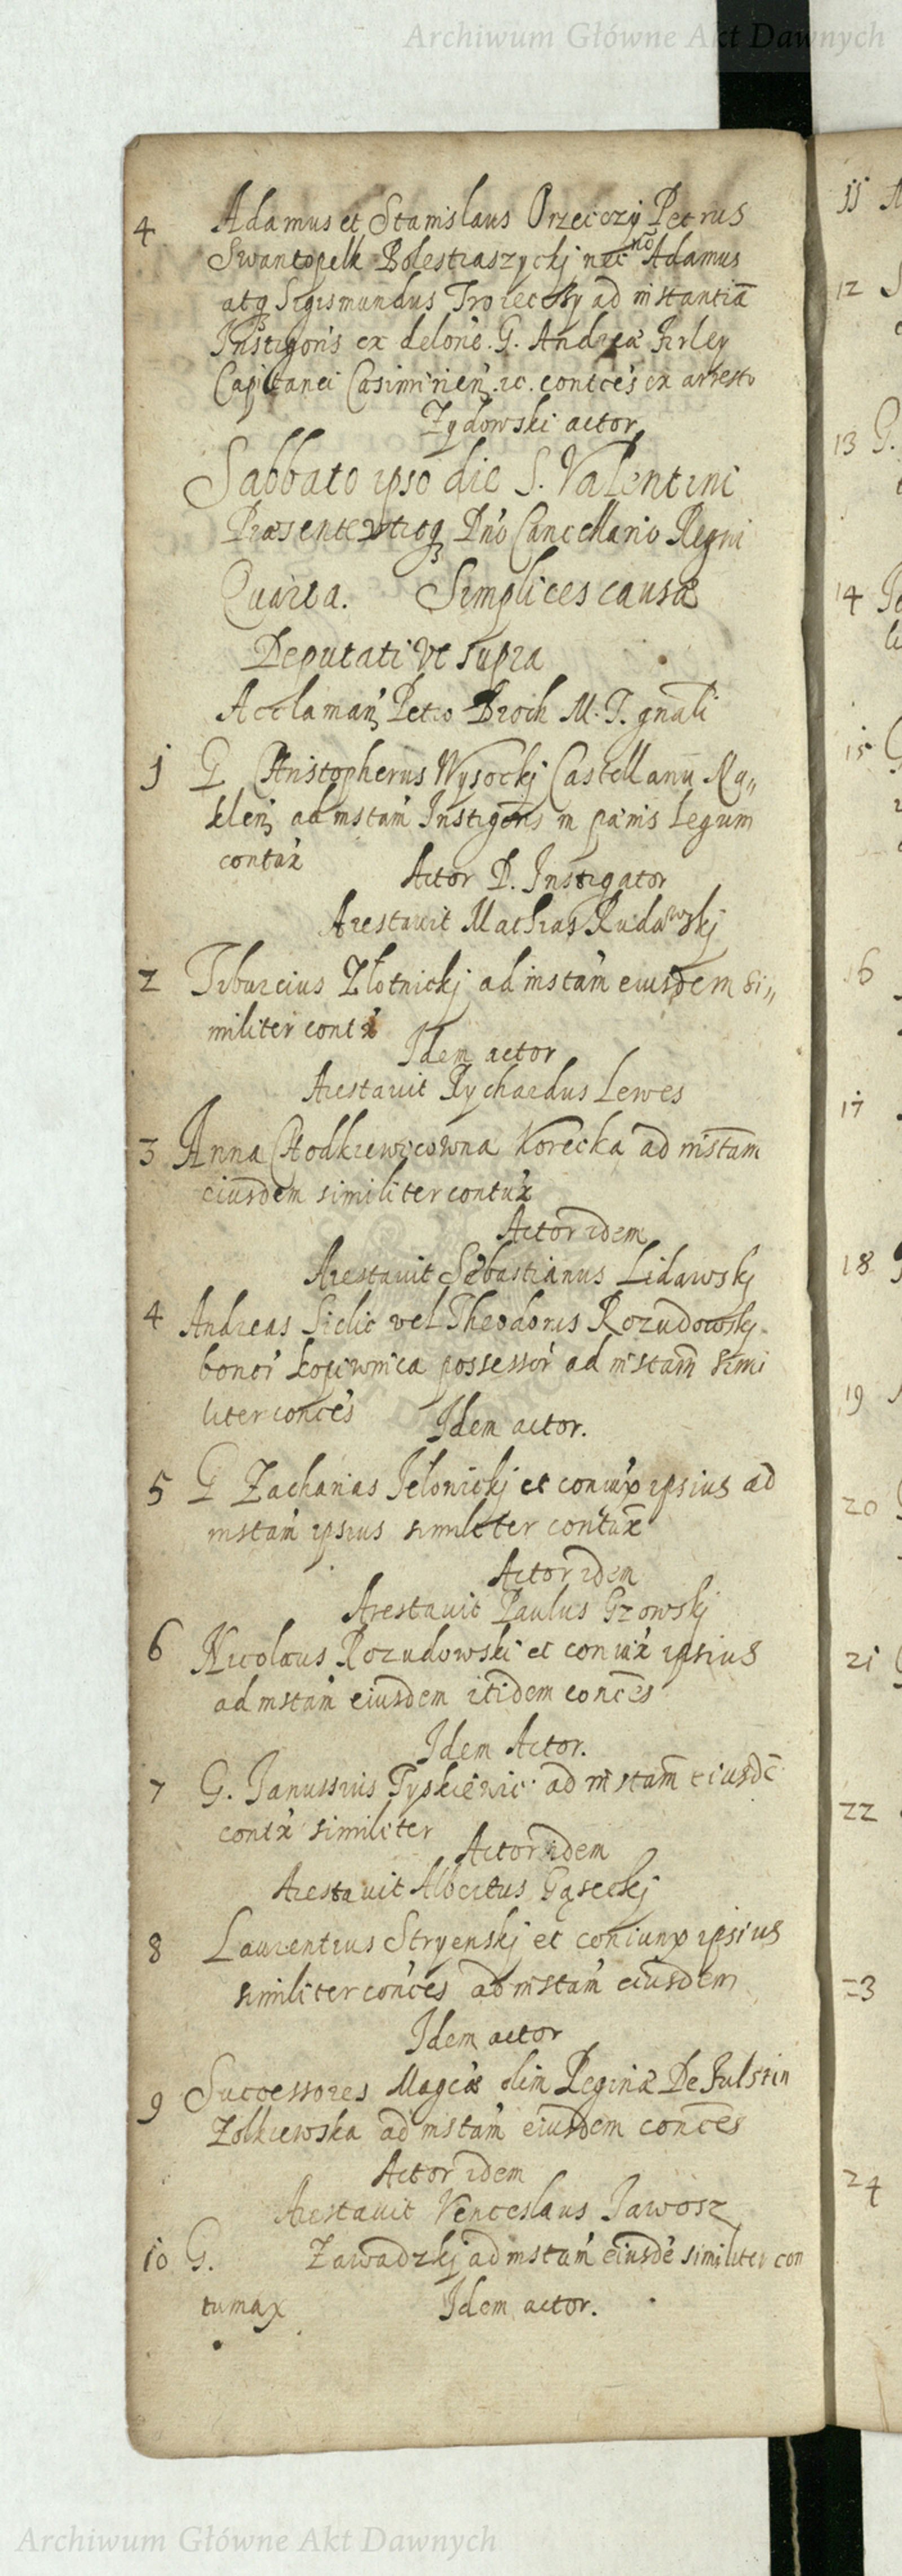 Archiwum Główne Akt Dawnych
4 Adamus et Stanislaus Orzeiczy Petrus
Swantopelk Bolestraszyckj nec nō Adamus
atq Sigismundus Troieczky ad instantiā
Instigoris ex delone G. Andreæ Firley
Capitanei Casimirien. rc. contces ex arresto
Zydowski actor
Sabbato ipso die S. Valentini
Præsente utroq Dno Cancellario Regni
Quarta. Simplices causæ
Deputati ut supra
Acclaman Petro Broch M. J. gnali
1 G Christopherus Wysockj Castellanu Na„
klen ad instam Instigoris in pænis Legum
contax
Actor D. Instigator
Arestavit Mathias Rudawskj
2 Tiburcius Złotnickj ad instam eiusdem si„
militer contx
Idem actor
Arestavit Rychardus Lewes
3 Anna Chodkiewicowna Korecka ad instam
eiusdem similiter contux
Actor idem
Arestavit Sebastianus Lidawskj
4 Andreas Siclic vel Theodorus Rozudowskj
bonor Kopiwnica possessor ad instam simi
liter conces
Idem actor.
5 G Zacharias Jelonickj et coniux ipsius ad
instam ipsius similiter contux
Actor idem
Arestavit Paulus Gzowskj
6 Nicolaus Rozudowski et coniux ipsius
ad instam eiusdem itidem conces
Idem Actor.
7 G. Janussius Tyskiewic ad instam eiusdē
contx similiter
Actor idem
Arestavit Albertus Gąseckj
8 Laurentius Stryenskj et coniunx ipsius
similiter contces ad instam eiusdem
Idem actor
9 Successores Magcæ olim Reginæ De Fulstin
Zolkiewska ad instam eiusdem conces
Actor idem
Arestavit Venceslaus Jawosz
10 G. Zawadzkj ad instam eiusdē similiter con
tumax Idem actor.
11
12
13 G.
14
15
16
17
18
19
20
21
22
23
24
Archiwum Główne Akt Dawnych